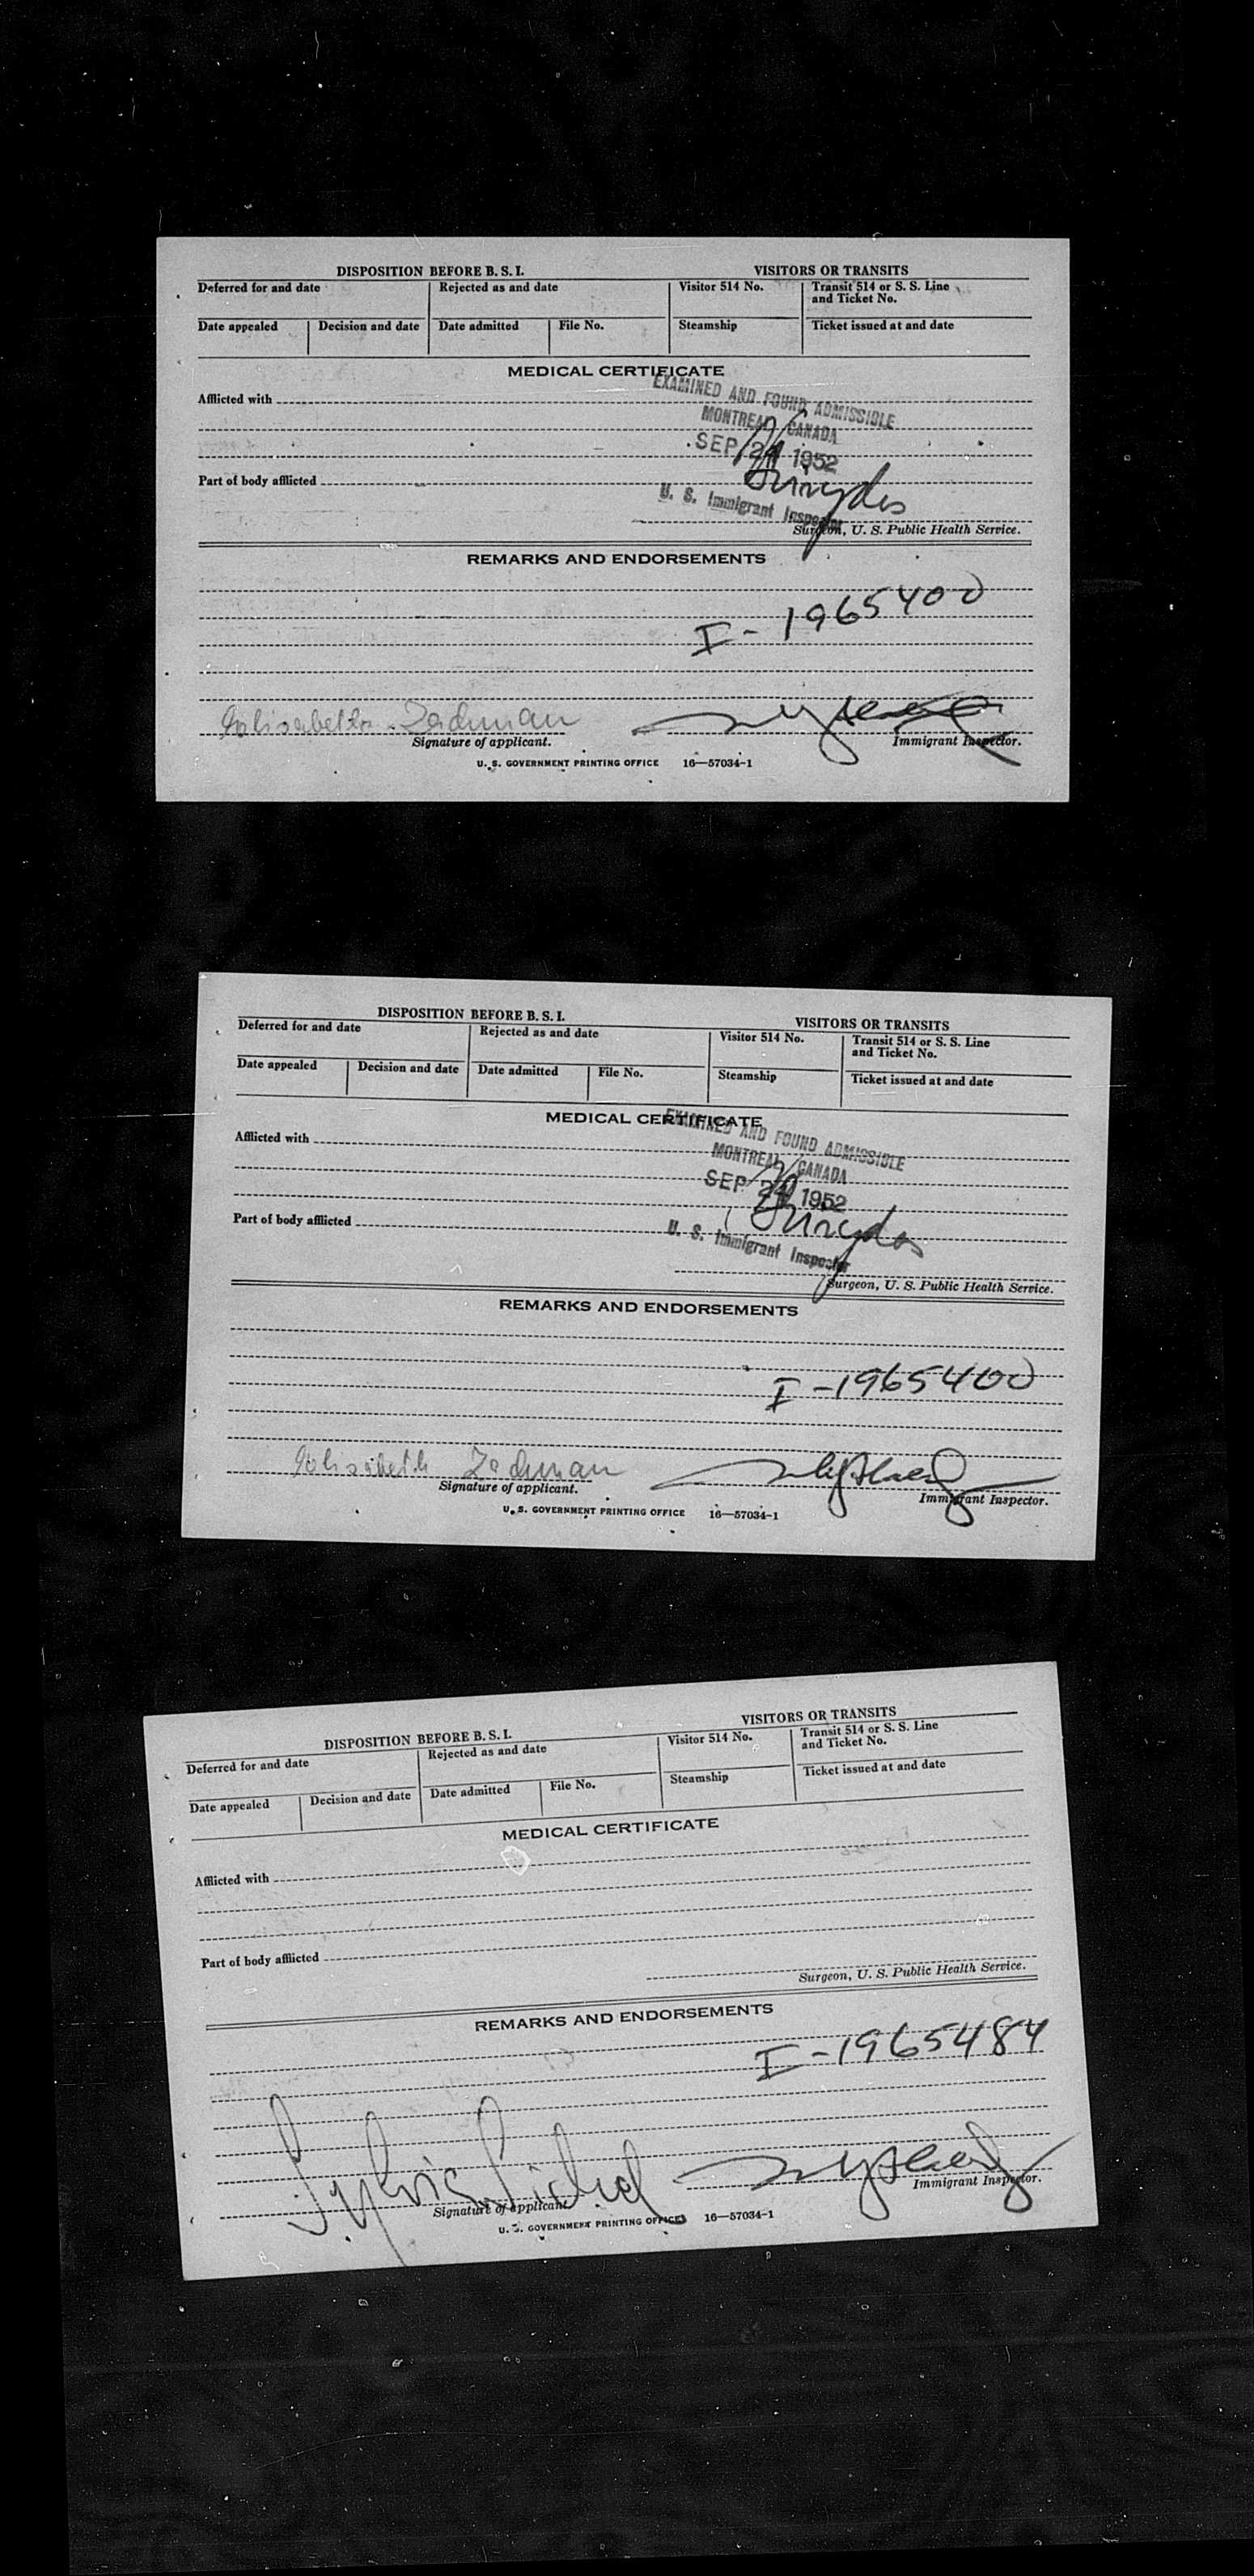 DISPOSITION BEFORE B. S. I.
VISITORS OR TRANSITS
Deferred for and date
Rejected as and date
Visitor 514 No.
Transit 514 or S. S. Line
and Ticket No.
Date appealed
Decision and date
Date admitted
File No.
Steamship
Ticket issued at and date
MEDICAL CERTIFICATE
EXAMINED AND FOUND ADMISSIBLE
Afflicted with
MONTREAL, CANADA
SEP 24 1952
Part of body afflicted
U. S. Immigrant Inspector
Surgeon, U. S. Public Health Service.
REMARKS AND ENDORSEMENTS
I - 1965400
Zadman
Signature of applicant.
Immigrant Inspector.
U. S. GOVERNMENT PRINTING OFFICE 16—57034-1
DISPOSITION BEFORE B. S. I.
VISITORS OR TRANSITS
Deferred for and date
Rejected as and date
Visitor 514 No.
Transit 514 or S. S. Line
and Ticket No.
Date appealed
Decision and date
Date admitted
File No.
Steamship
Ticket issued at and date
MEDICAL CERTIFICATE
EXAMINED AND FOUND ADMISSIBLE
Afflicted with
MONTREAL, CANADA
SEP 24 1952
Part of body afflicted
U. S. Immigrant Inspector
Surgeon, U. S. Public Health Service.
REMARKS AND ENDORSEMENTS
I - 1965400
Zadman
Signature of applicant.
Immigrant Inspector.
U. S. GOVERNMENT PRINTING OFFICE 16—57034-1
DISPOSITION BEFORE B. S. I.
VISITORS OR TRANSITS
Deferred for and date
Rejected as and date
Visitor 514 No.
Transit 514 or S. S. Line
and Ticket No.
Date appealed
Decision and date
Date admitted
File No.
Steamship
Ticket issued at and date
MEDICAL CERTIFICATE
Afflicted with
Part of body afflicted
Surgeon, U. S. Public Health Service.
REMARKS AND ENDORSEMENTS
I - 1965484
Sylvia
Signature of applicant.
Immigrant Inspector.
U. S. GOVERNMENT PRINTING OFFICE 16—57034-1